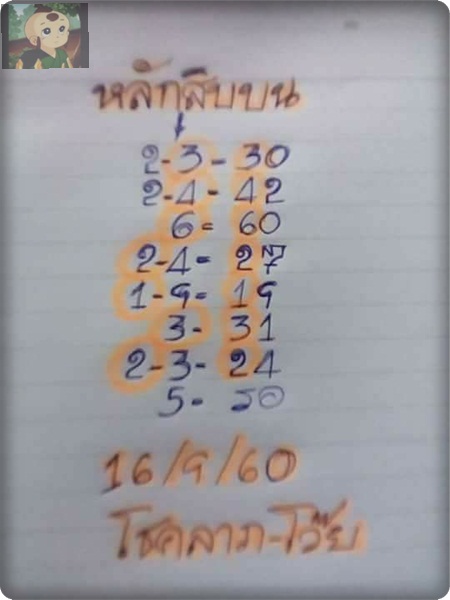 หลักสิบบน
2-3-30
2-4-42
6=60
2-4=27
1-9=19
3-31
2-3-24
5=50
16/9/60
โชคลาภ-โว้ย